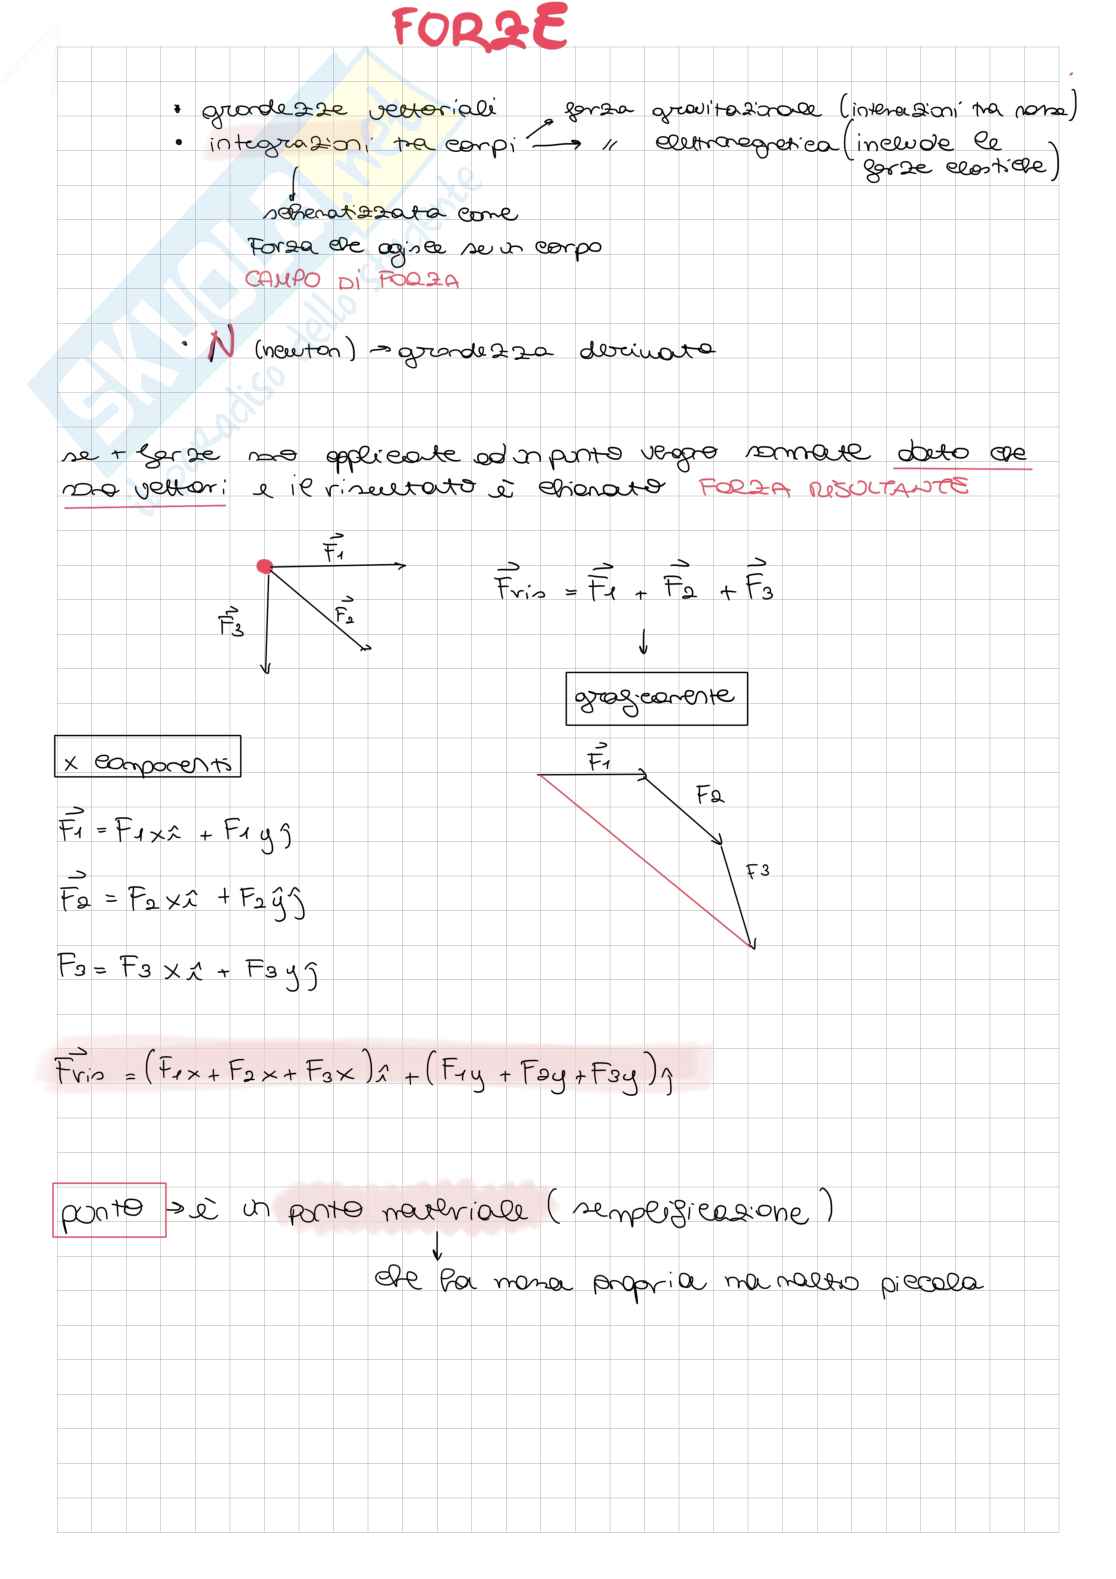 FORZE
• grandezze vettoriali
forza gravitazionale (interazioni tra masse)
• integrazioni tra corpi → " elettromagnetica (include le
forze elastiche)
schematizzata come
Forza che agisce su un corpo
CAMPO DI FORZA
• N (newton) → grandezza derivata
se + forze sono applicate ad un punto vengono sommate dato che
sono vettori e il risultato è chiamato FORZA RISULTANTE
F⃗1
F⃗2
F⃗3
F⃗ris = F⃗1 + F⃗2 + F⃗3
graficamente
F⃗1
F2
F3
x componenti
F⃗1 = F1xî + F1yĵ
F⃗2 = F2xî + F2ŷĵ
F3 = F3xî + F3yĵ
F⃗ris = (F1x + F2x + F3x)î + (F1y + F2y + F3y)ĵ
punto → è un punto materiale (semplificazione)
che ha massa propria ma molto piccola
SKUOLA.net
il paradiso dello studente